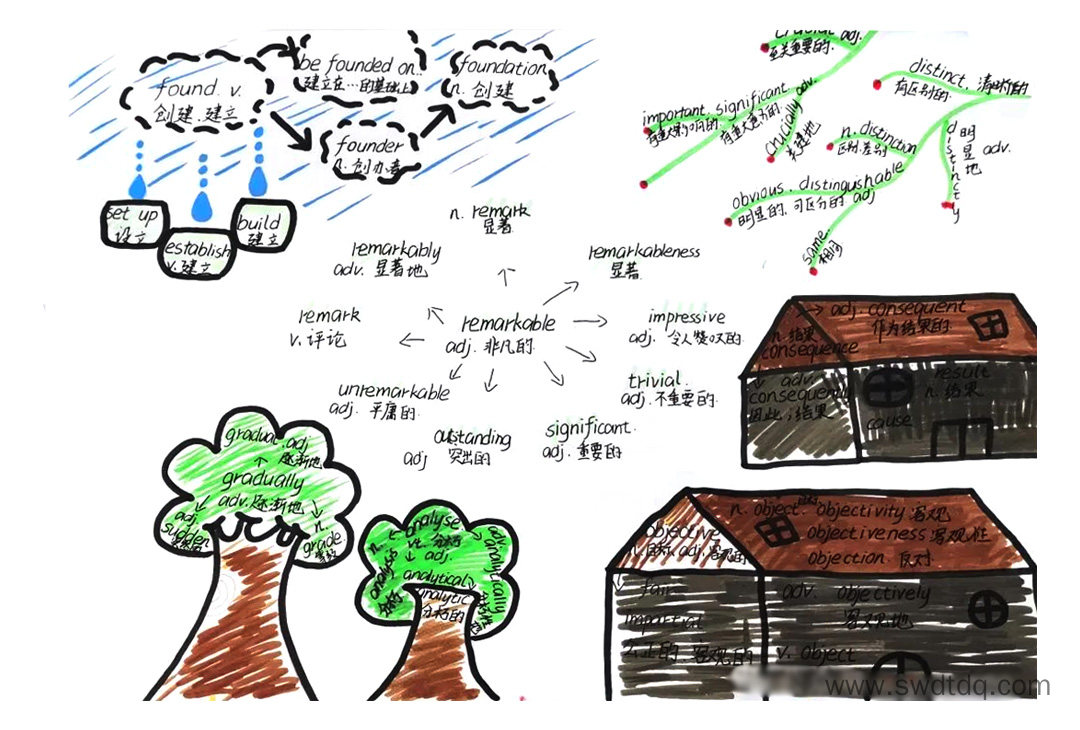 found. v.
创建.建立
be founded on..
建立在…的基础上
foundation
n. 创建
founder
n. 创办者
set up
设立
establish
v.建立
build
建立
crucial adj.
至关重要的.
important. significant.
有重大意义的.
crucially adv.
distinct. 清晰的
有区别的.
n. distinction
区别.差别
distincty
明显地 adv.
obvious. distingushable
明显的. 可区分的 adj
same
相同
remarkable
adj. 非凡的.
n. remark
显著
remarkably
adv. 显著地
remarkableness
显著.
remark
v. 评论
impressive
adj. 令人赞叹的.
unremarkable
adj. 平庸的.
trivial.
adj. 不重要的.
outstanding
adj 突出的
significant.
adj. 重要的
adj. consequent
作为结果的.
n. 结果
consequence
adv.
consequently
因此; 结果
result
n. 结果
cause
gradual. adj
逐渐地
gradually
adv. 逐渐地
adj.
sudden
n.
grade
等级
analyse
vt. 分析
n.
analysis
分析
adj.
analytical
analytic
分析的
analytically
n. object. objectivity 客观
objectiveness 客观性
objection 反对
objective
n.目标 adj. 客观的
fair
impartial
公正的 客观的
adv. objectively
客观地
v. object
www.swdtdq.com